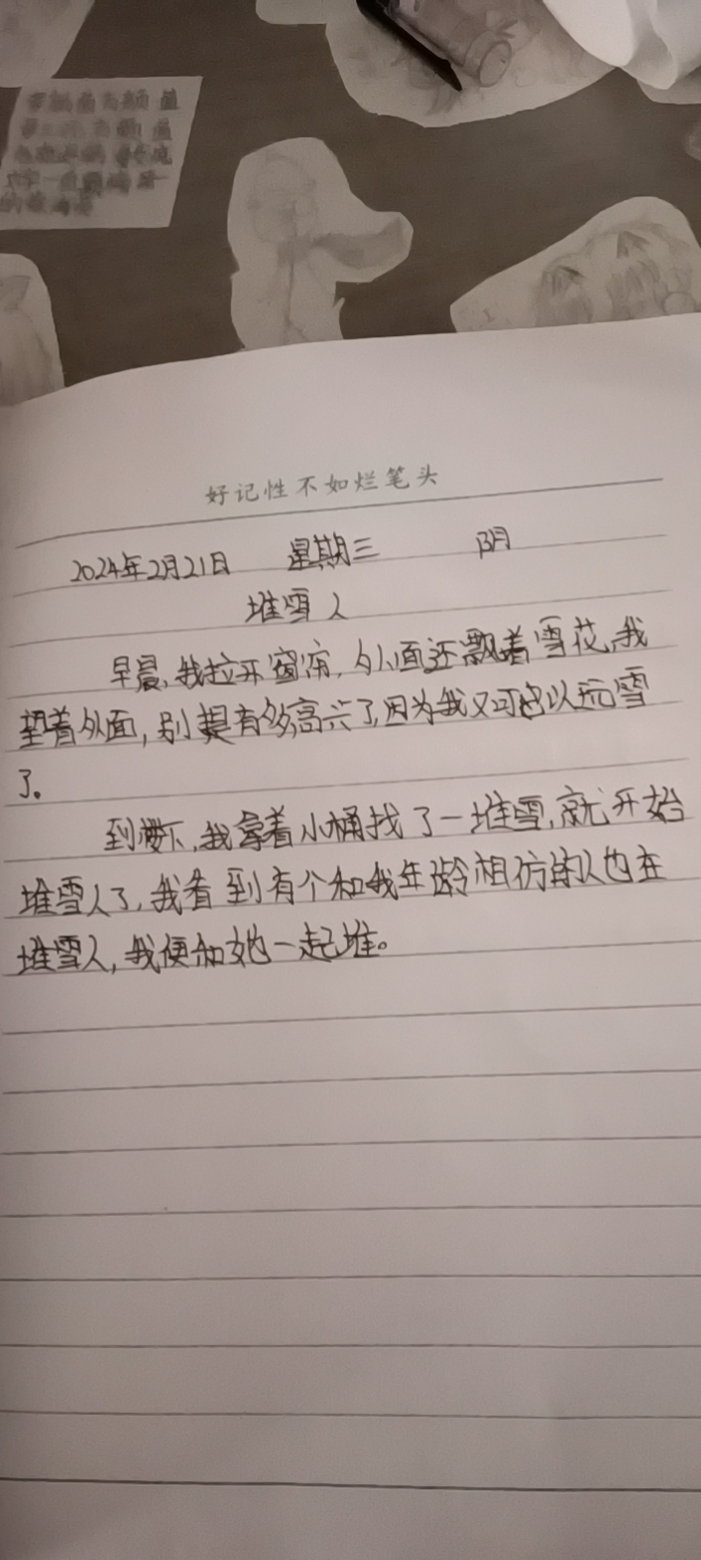 好记性不如烂笔头
2024年2月21日 星期三 阴
堆雪人
早晨,我拉开窗帘,外面还飘着雪花,我
望着外面,别提有多高兴了,因为我又可以玩雪
了。
到楼下,我拿着小桶找了一堆雪,就开始
堆雪人了,我看到有个和我年龄相仿的人也在
堆雪人,我便和她一起堆。